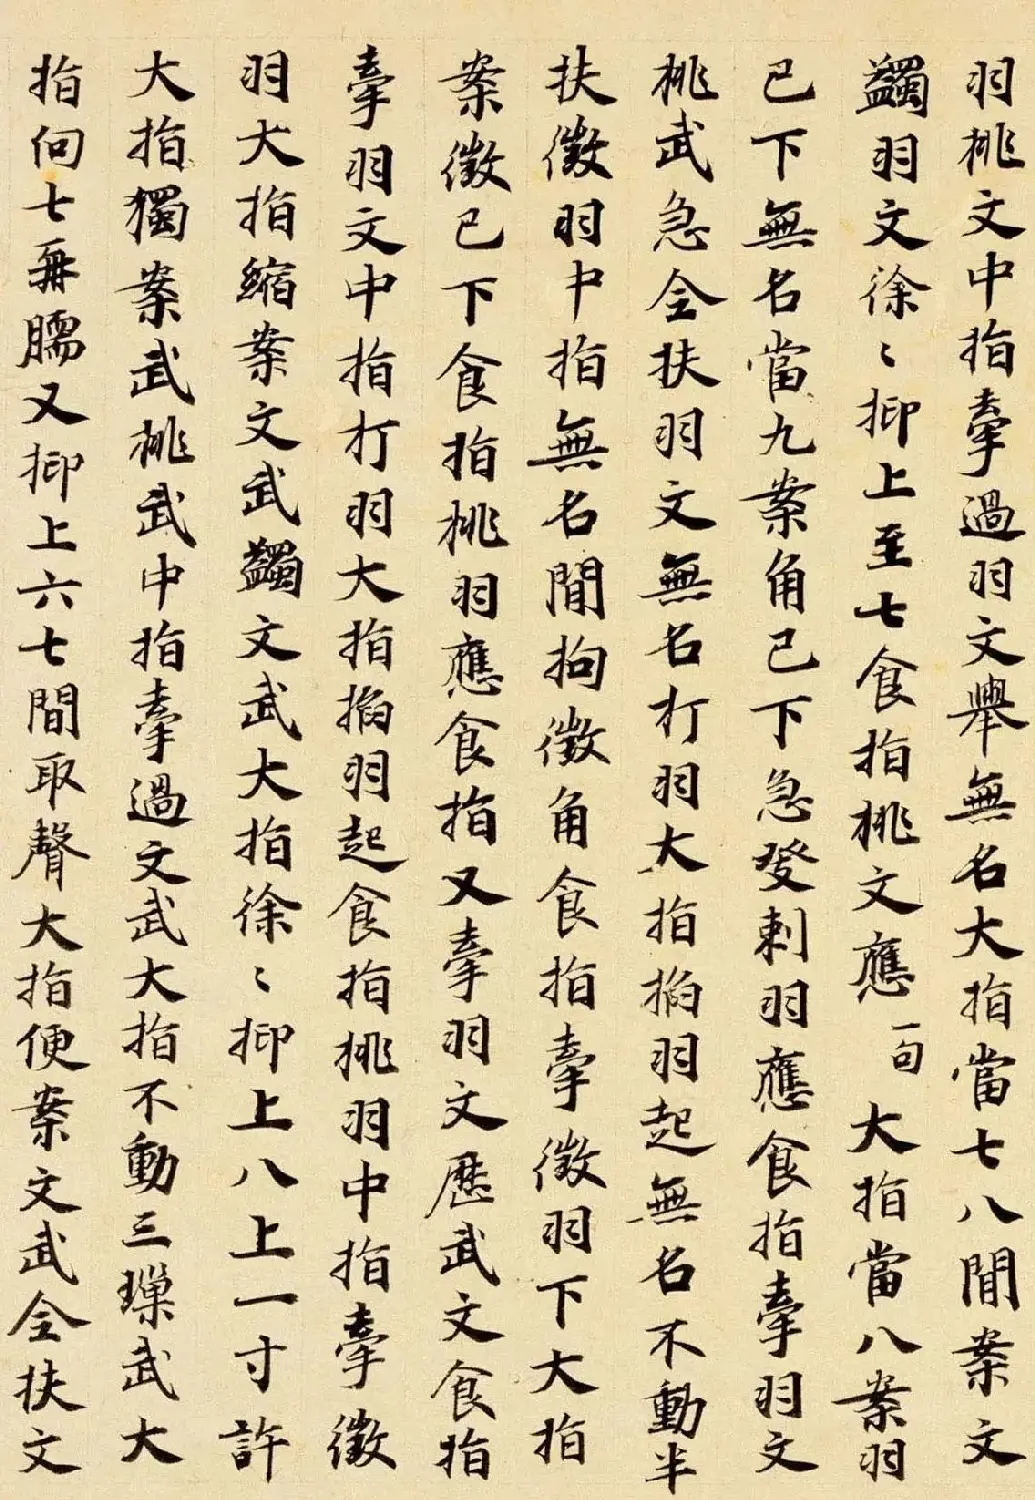 羽桃文中指牽過羽文舉無名大指當七八間案文
蠲羽文徐〻抑上至七食指桃文應一句大指當八案羽
已下無名當九案角已下急發刺羽應食指牽羽文
桃武急全扶羽文無名打羽大指掐羽起無名不動半
扶徵羽中指無名間拘徵角食指牽徵羽下大指
案徵已下食指桃羽應食指又牽羽文歷武文食指
牽羽文中指打羽大指掐羽起食指挑羽中指牽徵
羽大指縮案文武蠲文武大指徐〻抑上八上一寸許
大指獨案武桃武中指牽過文武大指不動三璅武大
指向七再臑又抑上六七間取聲大指便案文武全扶文